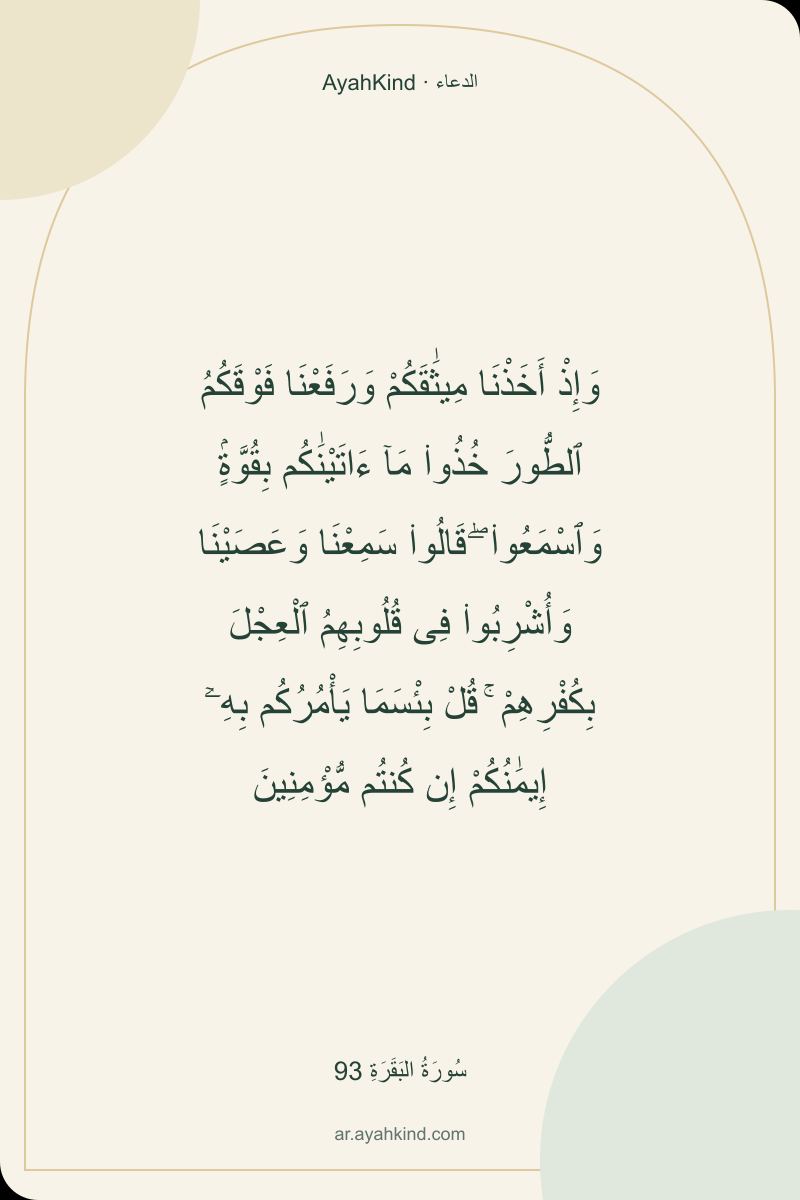 AyahKind · الدعاء
وَإِذْ أَخَذْنَا مِيثَٰقَكُمْ وَرَفَعْنَا فَوْقَكُمُ
ٱلطُّورَ خُذُوا۟ مَآ ءَاتَيْنَٰكُم بِقُوَّةٍۢ
وَٱسْمَعُوا۟ ۖ قَالُوا۟ سَمِعْنَا وَعَصَيْنَا
وَأُشْرِبُوا۟ فِى قُلُوبِهِمُ ٱلْعِجْلَ
بِكُفْرِهِمْ ۚ قُلْ بِئْسَمَا يَأْمُرُكُم بِهِۦٓ
إِيمَٰنُكُمْ إِن كُنتُم مُّؤْمِنِينَ
سُورَةُ البَقَرَةِ 93
ar.ayahkind.com